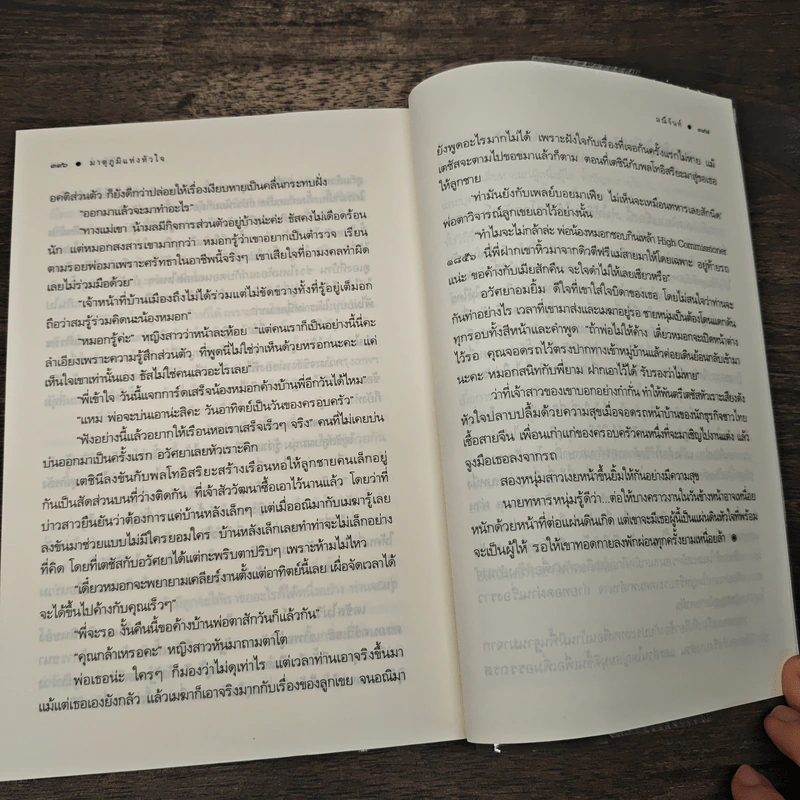 ๓๙๖ ● มาตุภูมิแห่งหัวใจ
อคติส่วนตัว ก็ยังดีกว่าปล่อยให้เรื่องเงียบหายเป็นคลื่นกระทบฝั่ง
"ออกมาแล้วจะมาทำอะไร"
"ทางแม่เขา น้ามลมีกิจการส่วนตัวอยู่บ้างน่ะค่ะ ธัสคงไม่เดือดร้อน
นัก แต่หมอกสงสารเขามากกว่า หมอกรู้ว่าเขาอยากเป็นตำรวจ เรียน
ตามรอยพ่อมาเพราะศรัทธาในอาชีพนี้จริงๆ เขาเสียใจที่อามงคลทำผิด
เลยไม่ร่วมมือด้วย"
"เจ้าหน้าที่บ้านเมืองถึงไม่ได้ร่วมแต่ไม่ขัดขวางทั้งที่รู้อยู่เต็มอก
ถือว่าสมรู้ร่วมคิดนะน้องหมอก"
"หมอกรู้ค่ะ" หญิงสาวว่าหน้าละห้อย "แต่คนเราก็เป็นอย่างนี้นี่คะ
ลำเอียงเพราะความรู้สึกส่วนตัว ที่พูดนี่ไม่ใช่ว่าเห็นด้วยหรอกนะคะ แค่
เห็นใจเขาเท่านั้นเอง ธัสไม่ใช่คนเลวอะไรเลย"
"พี่เข้าใจ วันนี้แจกการ์ดเสร็จน้องหมอกค้างบ้านพี่อีกวันได้ไหม"
"แหม พ่อจะบ่นเอาน่ะสิคะ วันอาทิตย์เป็นวันของครอบครัว"
"ฟังอย่างนี้แล้วอยากให้เรือนหอเราเสร็จเร็วๆ จริง" คนที่ไม่เคยบ่น
บ่นออกมาเป็นครั้งแรก อวัศยาเลยหัวเราะคิก
เตชินีลงขันกับพลโทอิสริยะสร้างเรือนหอให้ลูกชายคนเล็กอยู่
กันเป็นสัดส่วนบนที่ว่างติดกัน ที่เจ้าสัววัฒนาซื้อเอาไว้นานแล้ว โดยว่าที่
บ่าวสาวยืนยันว่าต้องการแค่บ้านหลังเล็กๆ แต่เมื่ออณิมากับเมฆารู้เลย
ลงขันมาช่วยแบบไม่มีใครยอมใคร บ้านหลังเล็กเลยทำท่าจะไม่เล็กอย่าง
ที่คิด โดยที่เตชัสกับอวัศยาได้แต่กะพริบตาปริบๆ เพราะห้ามไม่ไหว
"เดี๋ยวหมอกจะพยายามเคลียร์งานตั้งแต่อาทิตย์นี้เลย เผื่อจัดเวลาได้
จะได้ขึ้นไปค้างกับคุณเร็วๆ"
"พี่จะรอ งั้นคืนนี้ขอค้างบ้านพ่อตาสักวันก็แล้วกัน"
"คุณกล้าเหรอคะ" หญิงสาวหันมาถามตาโต
พ่อเธอน่ะ ใครๆ ก็มองว่าไม่ดุเท่าไร แต่เวลาท่านเอาจริงขึ้นมา
แม้แต่เธอเองยังกลัว แล้วเมฆาก็เอาจริงมากกับเรื่องของลูกเขย จนอณิมา
มณีจันท์ ●
ยังพูดอะไรมากไม่ได้ เพราะฝังใจกับเรื่องที่เจอกันครั้งแรกไม่หาย แม้
เตชัสจะตามไปขอขมาแล้วก็ตาม ตอนที่เตชินีกับพลโทอิสริยะมาสู่ขอเธอ
ให้ลูกชาย
"ท่ามันยังกับเพลย์บอยมาเฟีย ไม่เห็นจะเหมือนทหารเลยสักนิด"
พ่อตาวิจารณ์ลูกเขยเอาไว้อย่างนั้น
"ทำไมจะไม่กล้าล่ะ พ่อน้องหมอกชอบกินเหล้า High Commissioner
๑๘๕๖ นี่พี่ฝากเขาหิ้วมาจากดิวตีฟรีแม่สายมาให้โดยเฉพาะ อยู่ท้ายรถ
แน่ะ ขอค้างกับเมียสักคืน จะใจดำไม่ให้เลยเชียวหรือ"
อวัศยาอมยิ้ม ดีใจที่เขาใส่ใจบิดาของเธอ โดยไม่สนใจว่าท่านจะ
กันท่าอย่างไร เวลาที่เขามาส่งและเมฆาอยู่รอ ชายหนุ่มเป็นต้องโดนแดกดัน
ทุกรอบทั้งสีหน้าและคำพูด "ถ้าพ่อไม่ให้ค้าง เดี๋ยวหมอกจะเปิดหน้าต่าง
ไว้รอ คุณจอดรถไว้ตรงปากทางเข้าหมู่บ้านแล้วค่อยเดินย้อนกลับเข้ามา
นะคะ หมอกสนิทกับพี่ยาม ฝากเอาไว้ได้ รับรองว่าไม่หาย"
ว่าที่เจ้าสาวของเขาบอกอย่างกำกั่น ทำให้พันตรีเตชัสหัวเราะเสียงดัง
หัวใจปลาบปลื้มด้วยความสุขเมื่อจอดรถหน้าบ้านของนักธุรกิจชาวไทย
เชื้อสายจีน เพื่อนเก่าแก่ของครอบครัวคนหนึ่งที่จะมาเชิญไปงานแต่ง แล้ว
จูงมือเธอลงจากรถ
สองหนุ่มสาวเงยหน้าขึ้นยิ้มให้กันอย่างมีความสุข
นายทหารหนุ่มรู้ดีว่า...ต่อให้บางคราวงานในวันข้างหน้าอาจเหนื่อย
หนักด้วยหน้าที่ต่อแผ่นดินเกิด แต่เขาจะมีเธอผู้นี้เป็นแผ่นดินหัวใจที่พร้อม
จะเป็นผู้ให้ รอให้เขาทอดกายลงพักผ่อนทุกครั้งยามเหนื่อยล้า ●